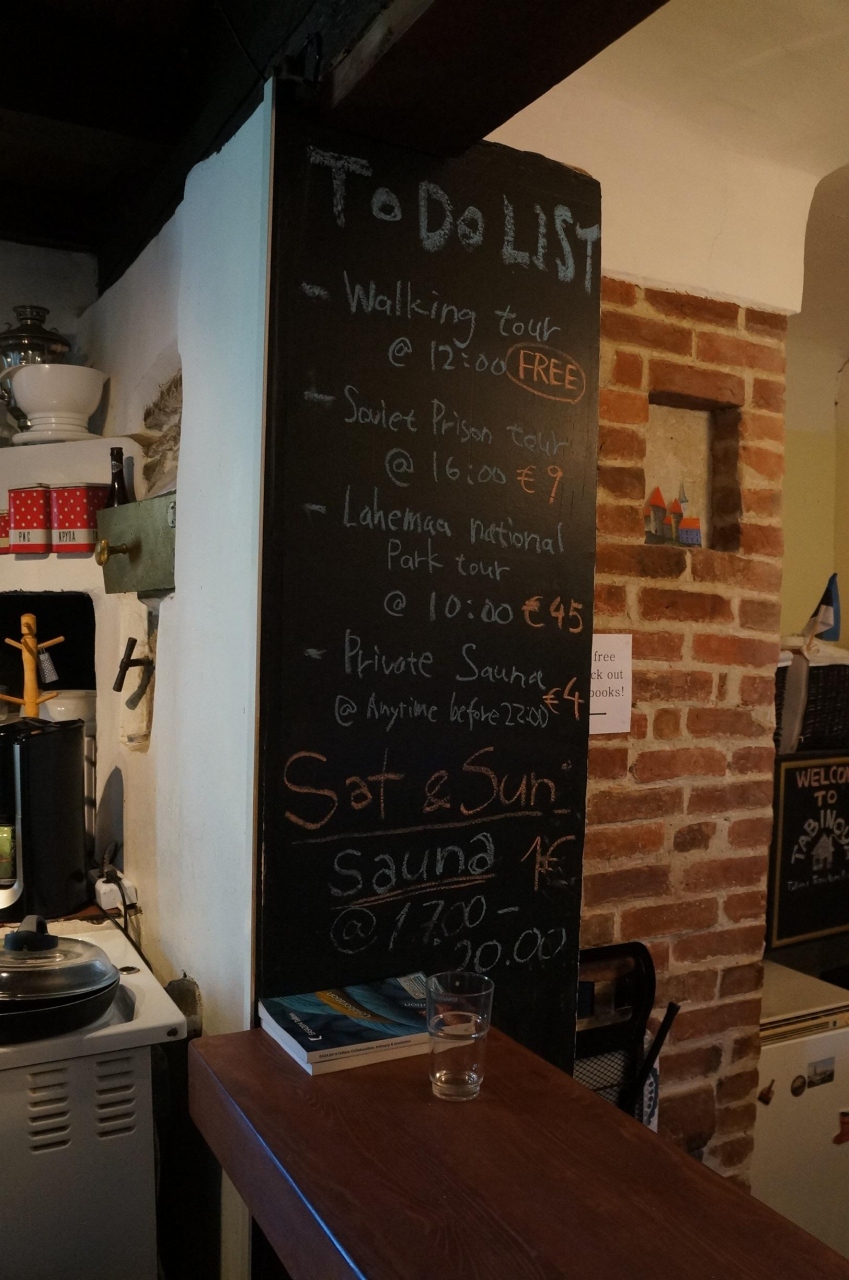 To Do LIST
- Walking tour
@ 12:00 FREE
- Soviet Prison tour
@ 16:00 €9
- Lahemaa national
Park tour
@ 10:00 €45
- Private Sauna
@ Anytime before 22:00 €4
Sat & Sun
Sauna 1€
@ 17.00 -
20.00
РИС
КРУПА
free
ck out
books!
WELCO
TO
TABINOU